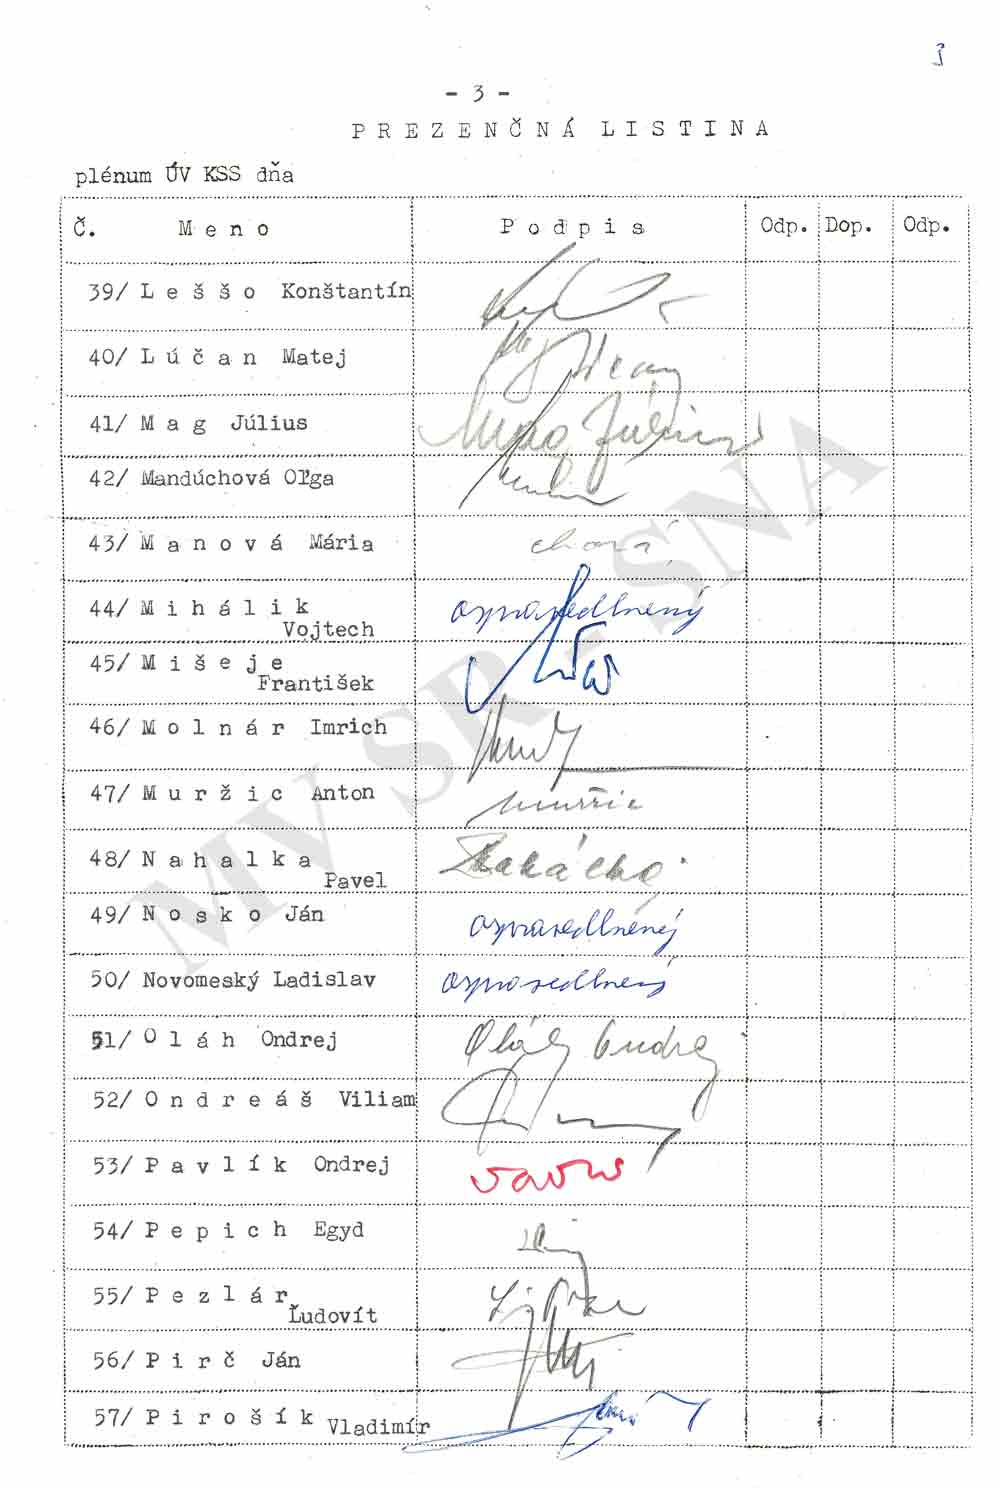 3
- 3 -
PREZENČNÁ LISTINA
plénum ÚV KSS dňa
Č. Meno Podpis Odp. Dop. Odp.
39/ Leššo Konštantín
40/ Lúčan Matej
41/ Mag Július
42/ Mandúchová Oľga
43/ Manová Mária chorá
44/ Mihálik ospravedlnený
Vojtech
45/ Mišeje
František
46/ Molnár Imrich
47/ Muržic Anton Muržic
48/ Nahalka
Pavel
49/ Nosko Ján ospravedlnený
50/ Novomeský Ladislav ospravedlnený
51/ Oláh Ondrej Oláh Ondrej
52/ Ondreáš Viliam
53/ Pavlík Ondrej
54/ Pepich Egyd
55/ Pezlár
Ľudovít
56/ Pirč Ján
57/ Pirošík
Vladimír
MV SR - SNA